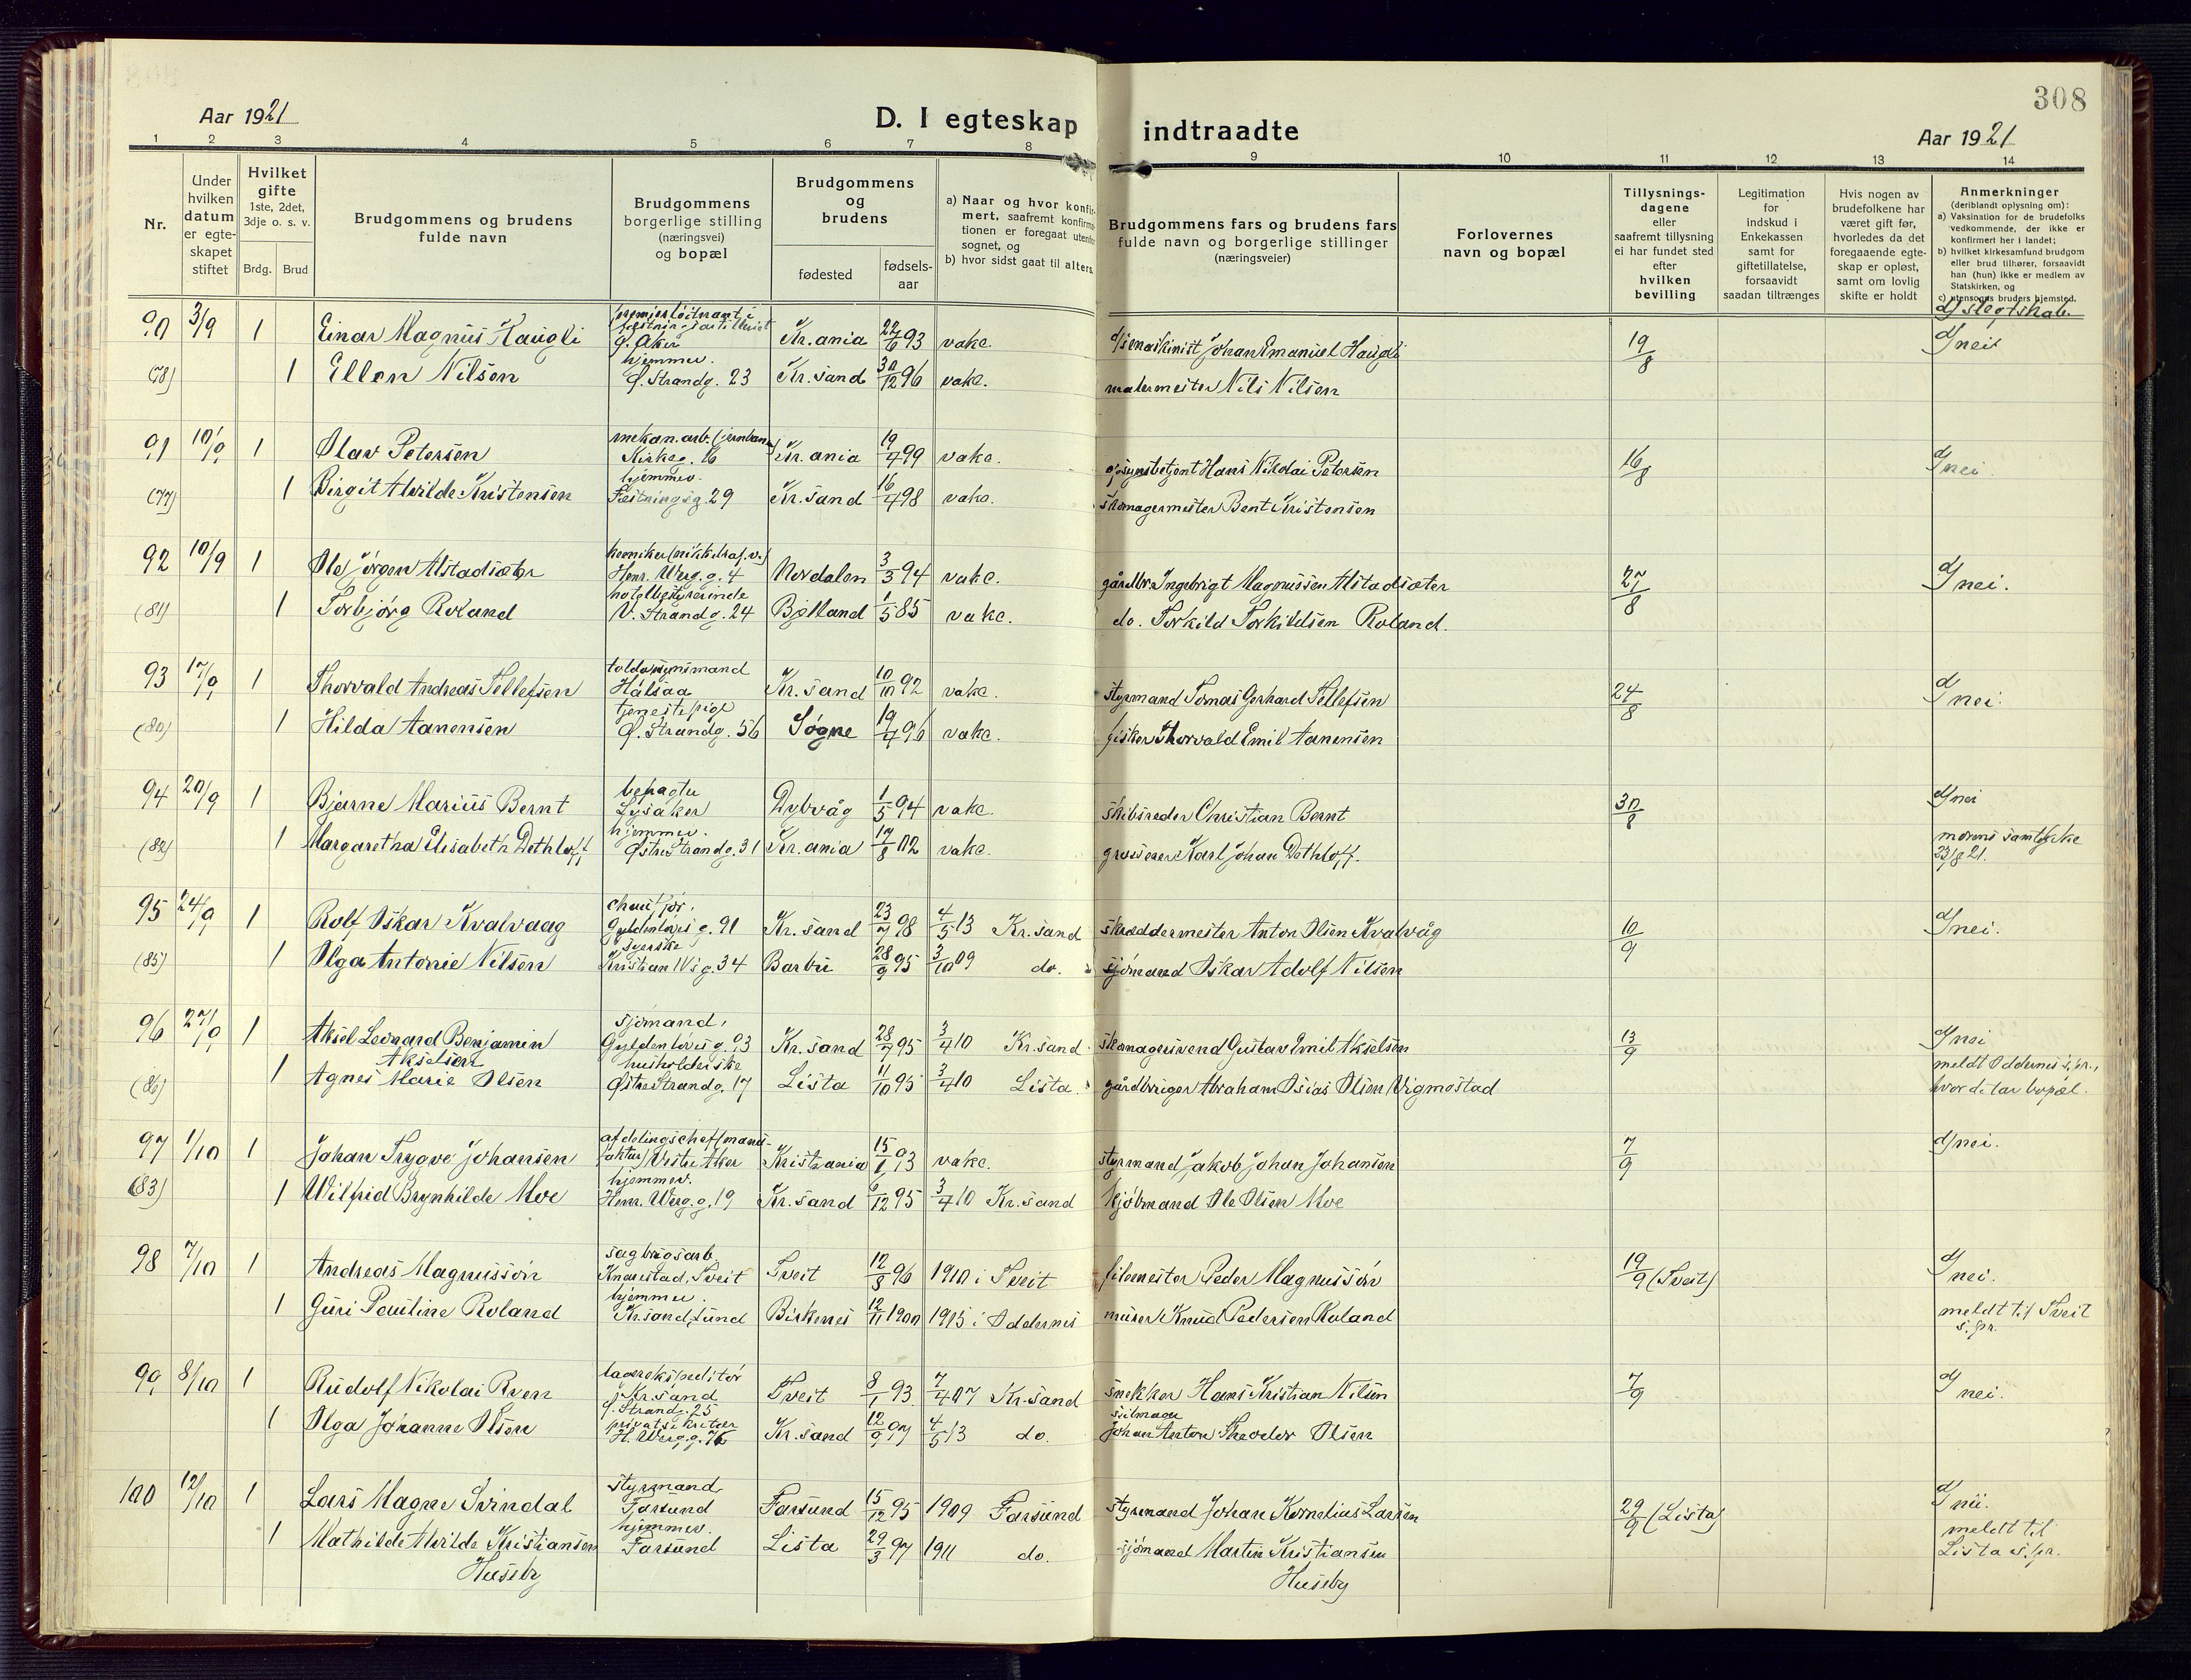 308
Aar 1921
D. I egteskap indtraadte
Aar 1921
1 2 3 4 5 6 7 8 9 10 11 12 13 14
Nr.
Under hvilken datum er egte-skapet stiftet
Hvilket gifte 1ste, 2det, 3dje o. s. v.
Brdg. Brud
Brudgommens og brudens fulde navn
Brudgommens borgerlige stilling (næringsvei) og bopæl
Brudgommens og brudens
fødested
fødsels-aar
a) Naar og hvor konfir-mert, saafremt konfirma-tionen er foregaat utenfor sognet, og
b) hvor sidst gaat til alters.
Brudgommens fars og brudens fars fulde navn og borgerlige stillinger (næringsveier)
Forlovernes navn og bopæl
Tillysnings-dagene eller saafremt tillysning ei har fundet sted efter hvilken bevilling
Legitimation for indskud i Enkekassen samt for giftetillatelse, forsaavidt saadan tiltrænges
Hvis nogen av brudefolkene har været gift før, hvorledes da det foregaaende egte-skap er opløst, samt om lovlig skifte er holdt
Anmerkninger (deriblandt oplysning om):
a) Vaksination for de brudefolks vedkommende, der ikke er konfirmert her i landet;
b) hvilket kirkesamfund brudgom eller brud tilhører, forsaavidt han (hun) ikke er medlem av Statskirken, og
c) utensogns bruders hjemsted.
d) slegtskab.
90 3/9 1 Einar Magnus Haugli premierløitnant i festningsartilleriet Ø. Aker Kr.ania 22/6 93 vake. Johan Emanuel Haugli 19/8 d) nei
(78) 1 Ellen Nilsen hjemmev. Ø. Strandg. 23 Kr.sand 30/12 96 vake. malermester Nils Nilsen
91 10/9 1 Olav Petersen mekan. arb. (jernbane) Kirkeg. 16 Kr.ania 19/4 99 vake. Hans Nikolai Petersen 16/8 d) nei
(77) 1 Birgit Alvilde Kristensen hjemmev. Festningsg. 29 Kr.sand 16/4 98 vake. skomagermester Bent Kristensen
92 10/9 1 Ole Jørgen Alstadsæter kemiker (nikkelraf.v.) Henr. Werg. g. 4 Nordalen 3/3 94 vake. gårdbr. Ingebrigt Magnussen Alstadsæter 27/8 d) nei.
(81) 1 Torbjørg Roland hotelbestyrerinde V. Strandg. 24 Bjelland 1/5 85 vake. do. Torkild Torkildsen Roland.
93 17/9 1 Thorvald Andreas Tellefsen toldopsynsmand Hålsaa Kr.sand 10/10 92 vake. styrmand Tomas Gerhard Tellefsen 24/8 d) nei.
(80) 1 Hilda Aanensen tjenestepige Ø. Strandg. 56 Søgne 19/4 96 vake. fisker Thorvald Emil Aanensen
94 20/9 1 Bjarne Marius Bernt Lysaker Dybvåg 1/5 94 vake. skibsreder Christian Bernt 30/8 d) nei
(82) 1 Margaretha Elisabeth Dethloff hjemmev. Østre Strandg. 31 Kr.ania 17/8 02 vake. grosserer Karl Johan Dethloff. morens samtykke 23/8 21.
95 24/9 1 Rolf Oskar Kvalvaag chauffør, Gyldenløvis g. 91 Kr.sand 23/7 98 4/5 13 Kr.sand skræddermester Anton Olsen Kvalvåg 10/9 d) nei.
(85) 1 Olga Antonie Nilsen syerske Kristian IVs g. 34 Barbu 28/9 95 3/10 09 do. sjømand Oskar Adolf Nilsen
96 27/9 1 Aksel Leonard Benjamin Akselsen sjømand, Gyldenløvis g. 93 Kr.sand 28/7 95 3/4 10 Kr.sand skomagersvend Gustav Emil Akselsen 13/9 d) nei
(86) 1 Agnes Marie Olsen husholderske Østre Strandg. 17 Lista 11/10 95 3/4 10 Lista. gårdbruger Abraham Osias Olsen Vigmostad meldt Oddernes s.pr., hvor de tar bopæl.
97 1/10 1 Johan Trygve Johansen afdelingschef (manufaktur) Vestre Aker Kristiania 15/1 93 vake. styrmand Jakob Johan Johansen 7/9 d) nei.
(83) 1 Wilfrid Brynhilde Moe hjemmev. Henr. Werg. g. 19 Kr.sand 9/12 95 3/4 10 Kr.sand kjøbmand Ole Olsen Moe
98 7/10 1 Andreas Magnussøn sagbrugsarb. Knarestad, Tveit Tveit 12/8 96 1910 i Tveit filemester Peder Magnussøn 19/9 (Tveit) d) nei.
1 Guri Pauline Roland hjemmev. Kr.sand, Lund Birkenes 12/11 1900 1915 i Oddernes murer Knud Pedersen Roland meldt til Tveit s.pr.
99 8/10 1 Rudolf Nikolai Rven lagerekspeditør Kr.sand Ø. Strandg. 25 Tveit 8/1 93 7/4 07 Kr.sand snekker Hans Kristian Nilsen 7/9 d) nei.
1 Olga Johanne Olsen privatsekretær H. Werg. g. Kr.sand 12/9 97 4/5 13 do. seilmager Johan Anton Theodor Olsen
100 12/10 1 Lars Magne Svindal styrmand, Farsund Farsund 15/12 95 1909 Farsund styrmand Johan Kornelius Larsen 29/9 (Lista) d) nei.
1 Mathilde Alvilde Kristiansen Huseby hjemmev. Farsund Lista 29/3 97 1911 do. sjømand Martin Kristiansen Huseby meldt til Lista s.pr.